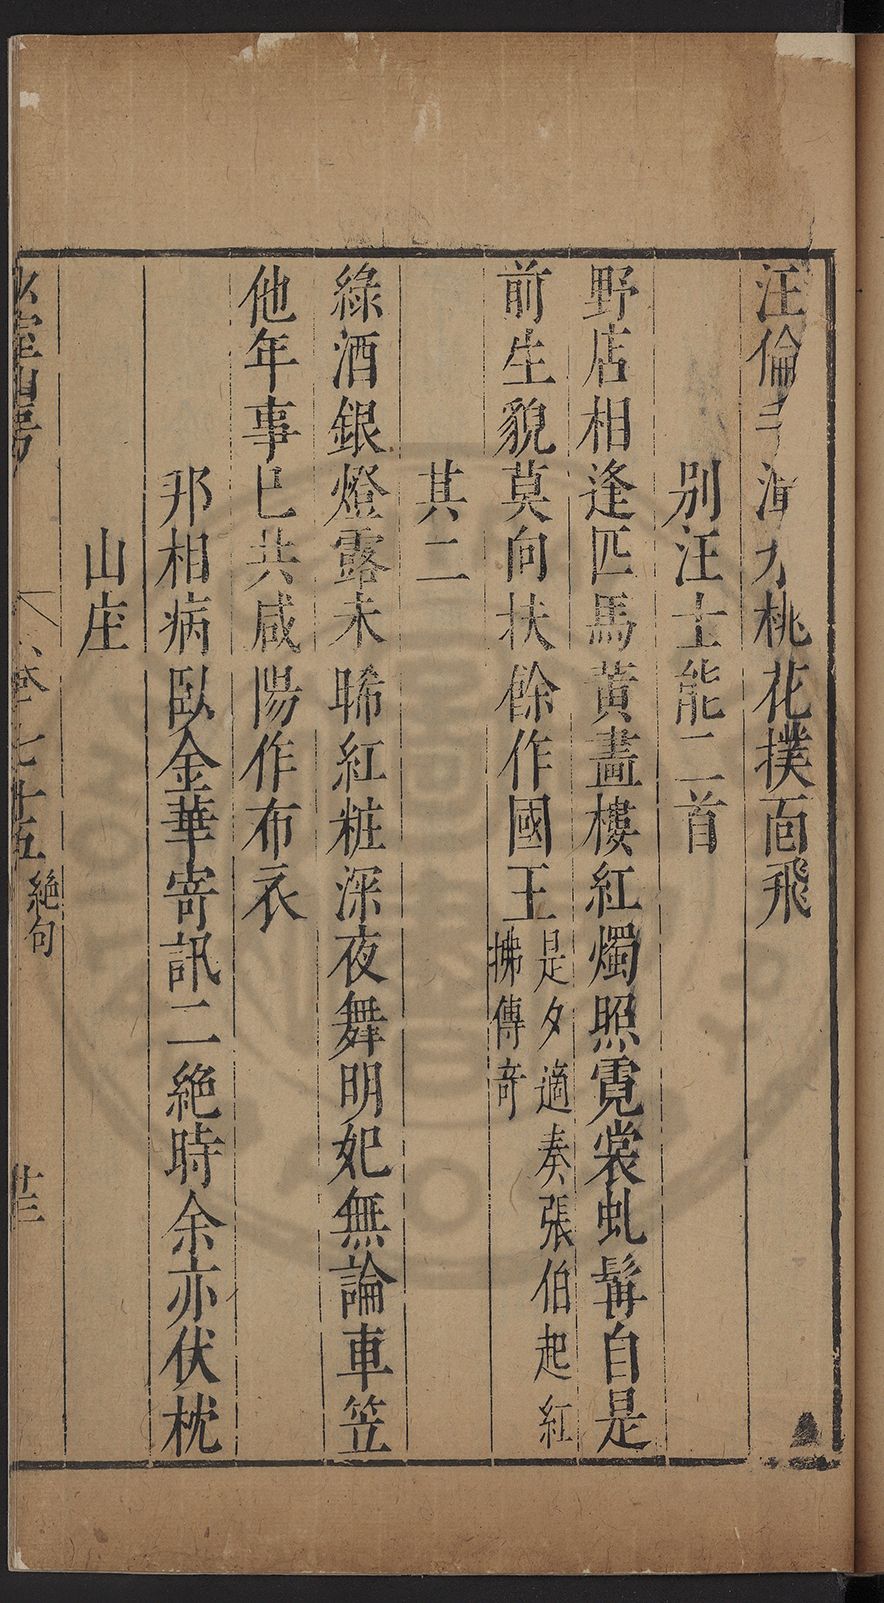 汪倫 桃花撲面飛
別汪士能二首
野店相逢匹馬黃畫樓紅燭照霓裳虬髯自是
前生貌莫向扶餘作國王是夕適奏張伯起紅
拂傳奇
其二
綠酒銀燈露未晞紅粧深夜舞明妃無論車笠
他年事已共咸陽作布衣
邦相病臥金華寄訊二絶時余亦伏枕
山庄
室山房
卷七十五 絶句 廿三